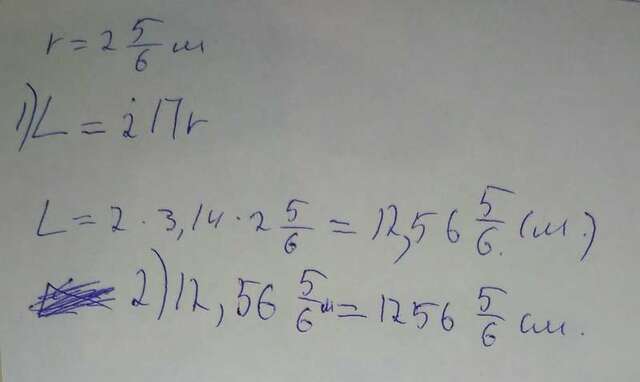 r = 2 5/6 м
1) L = 2Пr
L = 2 · 3,14 · 2 5/6 = 12,56 5/6 (м.)
2) 12,56 5/6 м = 1256 5/6 см.